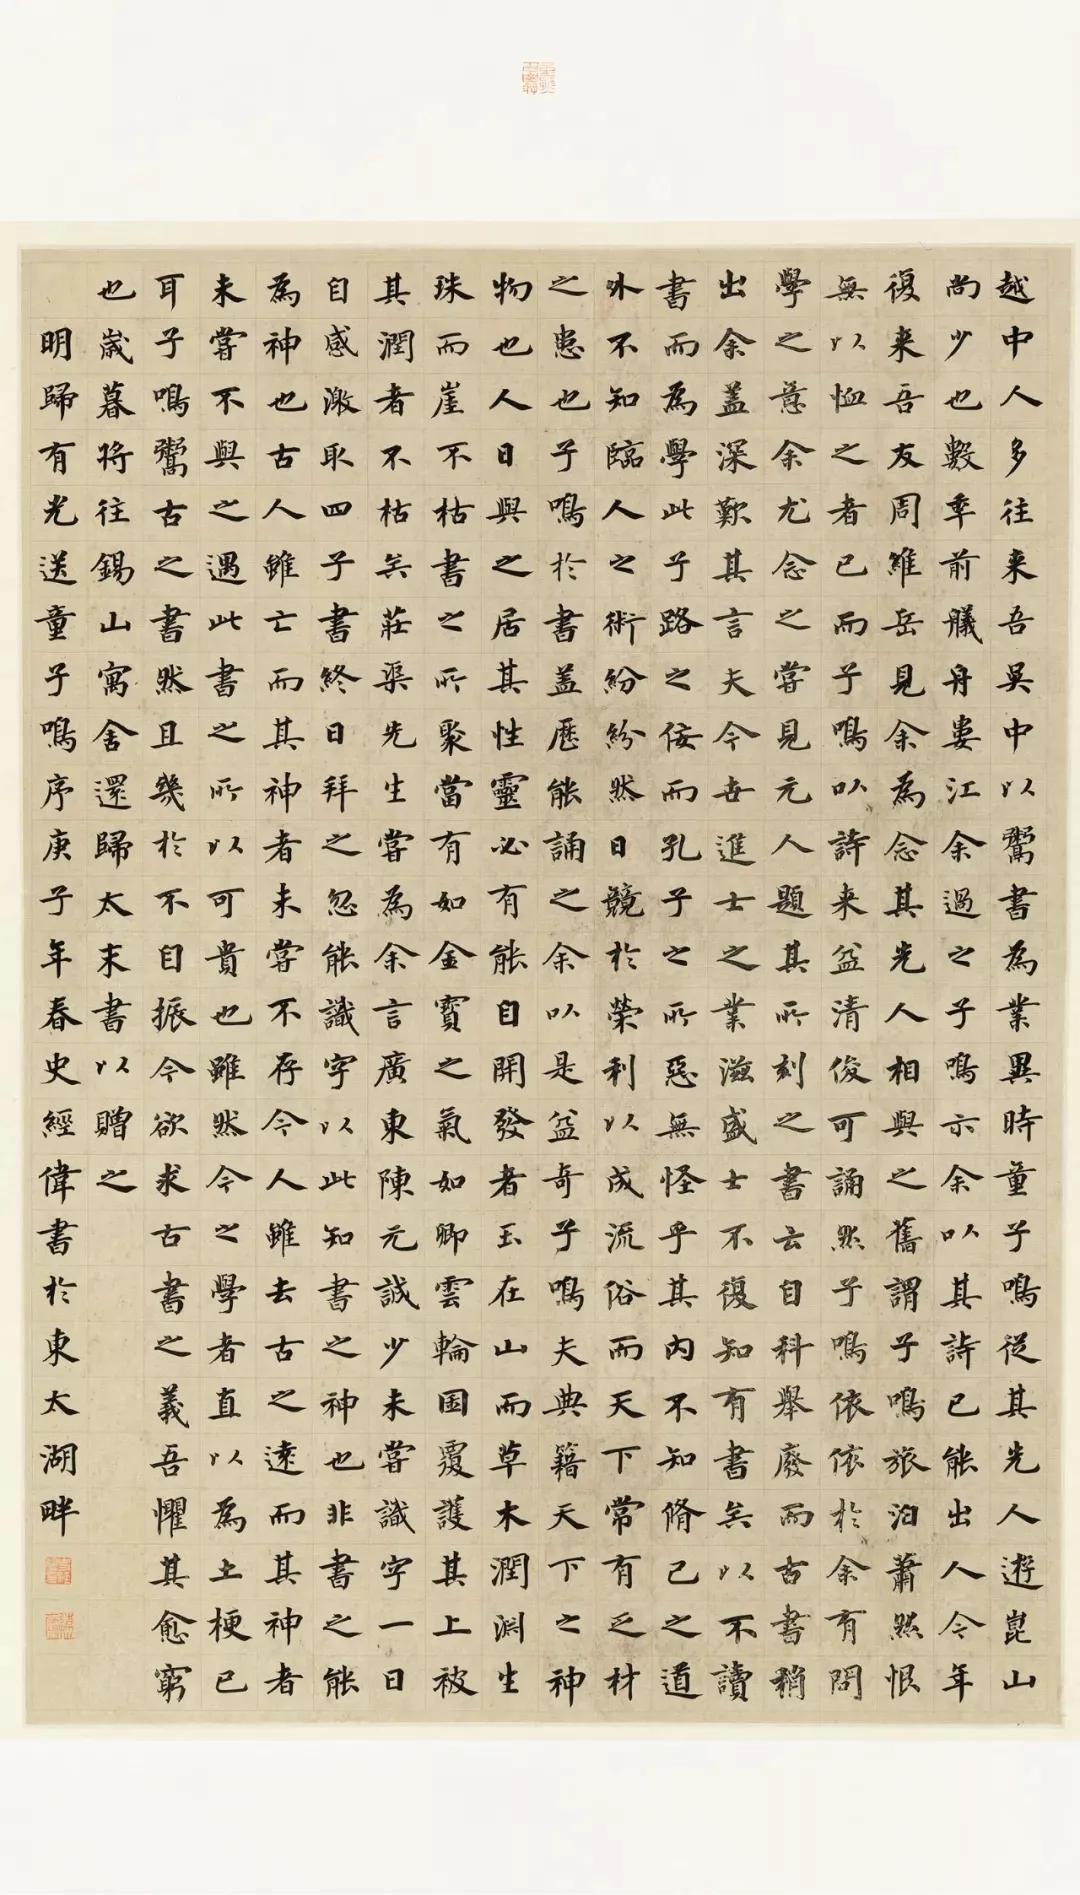 越中人多往来吾吳中以鬻書為業異時童子鳴從其先人遊崑山
尚少也數年前艤舟婁江余過之子鳴示余以其詩已能出人今年
復来吾友周維岳見余為念其先人相與之舊謂子鳴旅泊蕭然恨
無以恤之者已而子鳴以詩来益清俊可誦然子鳴依依於余有問
學之意余尤念之嘗見元人題其所刻之書云自科舉廢而古書稍
出余蓋深歎其言夫今世進士之業滋盛士不復知有書矣以不讀
書而為學此子路之佞而孔子之所惡無怪乎其內不知脩己之道
外不知臨人之術紛紛然日競於榮利以成流俗而天下常有乏材
之患也子鳴於書蓋歷能誦之余以是益奇子鳴夫典籍天下之神
物也人日與之居其性靈必有能自開發者玉在山而草木潤淵生
珠而崖不枯書之所聚當有如金寶之氣如卿雲輪囷覆護其上被
其潤者不枯矣莊渠先生嘗為余言廣東陳元誠少未嘗識字一日
自感激取四子書終日拜之忽能識字以此知書之神也非書之能
為神也古人雖亡而其神者未嘗不存今人雖去古之遠而其神者
未嘗不與之遇此書之所以可貴也雖然今之學者直以為土梗已
耳子鳴鬻古之書然且幾於不自振今欲求古書之義吾懼其愈窮
也歲暮將往錫山寓舍還歸太末書以贈之
明歸有光送童子鳴序庚子年春史經偉書於東太湖畔